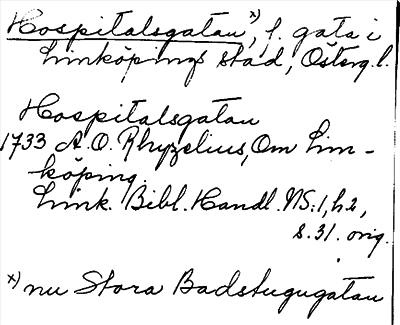 Hospitalsgatan x), f. gata i
Linköpings stad, Österg.l.
Hospitalsgatan
1733 A. O. Rhyzelius, Om Lin-
köping.
Link. Bibl. Handl. NS:1, h 2,
s. 31. orig.
x) nu Stora Badstugugatan